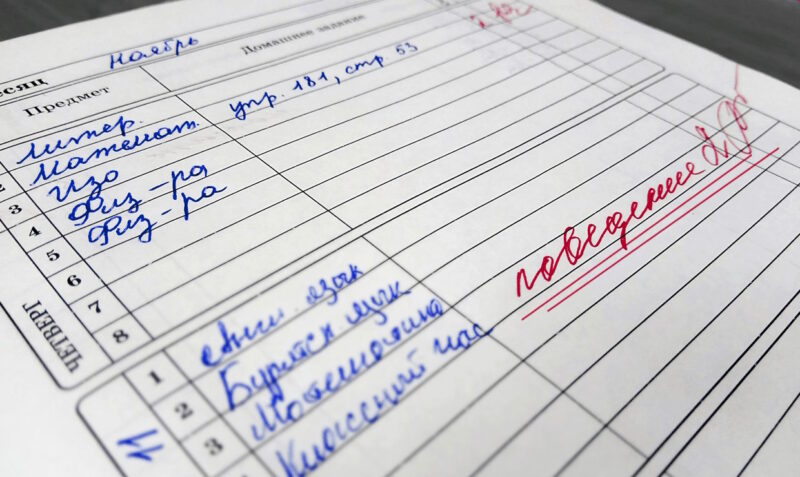 есяц ноябрь
Предмет Домашнее задание
литер.
2 математ. упр. 181, стр. 53
3 изо
4 Физ-ра
5 Физ-ра
6
7
8
ЧЕТВЕРГ
поведение 2
1 Англ. язык
2 Бурятск. язык
3 Математика
Классный час
11